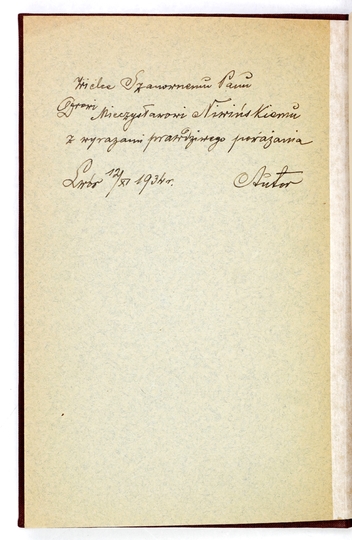 Wielce Szanownemu Panu
Drowi Mieczysławowi Niwińskiemu
z wyrazami prawdziwego poważania
Lwów 12/XI 1934 r. Autor